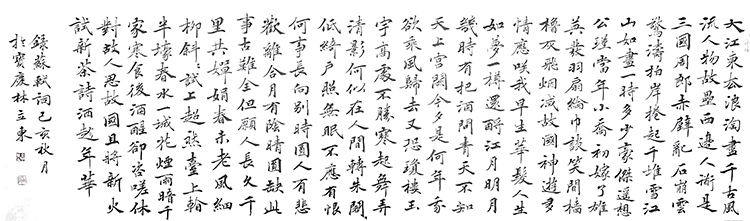 大江東去浪淘盡千古風
流人物故壘西邊人道是
三國周郎赤壁亂石崩雲
驚濤拍岸捲起千堆雪江
山如畫一時多少豪傑遥想
公瑾當年小喬初嫁了雄
英發羽扇綸巾談笑間檣
櫓灰飛烟滅故國神遊多
情應笑我早生華髮人生
如夢一樽還酹江月明月
幾時有把酒問青天不知
天上宮闕今夕是何年我
欲乘風歸去又恐瓊樓玉
宇高處不勝寒起舞弄
清影何似在人間轉朱閣
低綺戶照無眠不應有恨
何事長向別時圓人有悲
歡離合月有陰晴圓缺此
事古難全但願人長久千
里共嬋娟春未老風細
柳斜〻試上超然臺上看
半壕春水一城花煙雨暗千
家寒食後酒醒卻咨嗟休
對故人思故國且將新火
試新茶詩酒趁年華
錄蘇軾詞己亥秋月
於寶應林立東